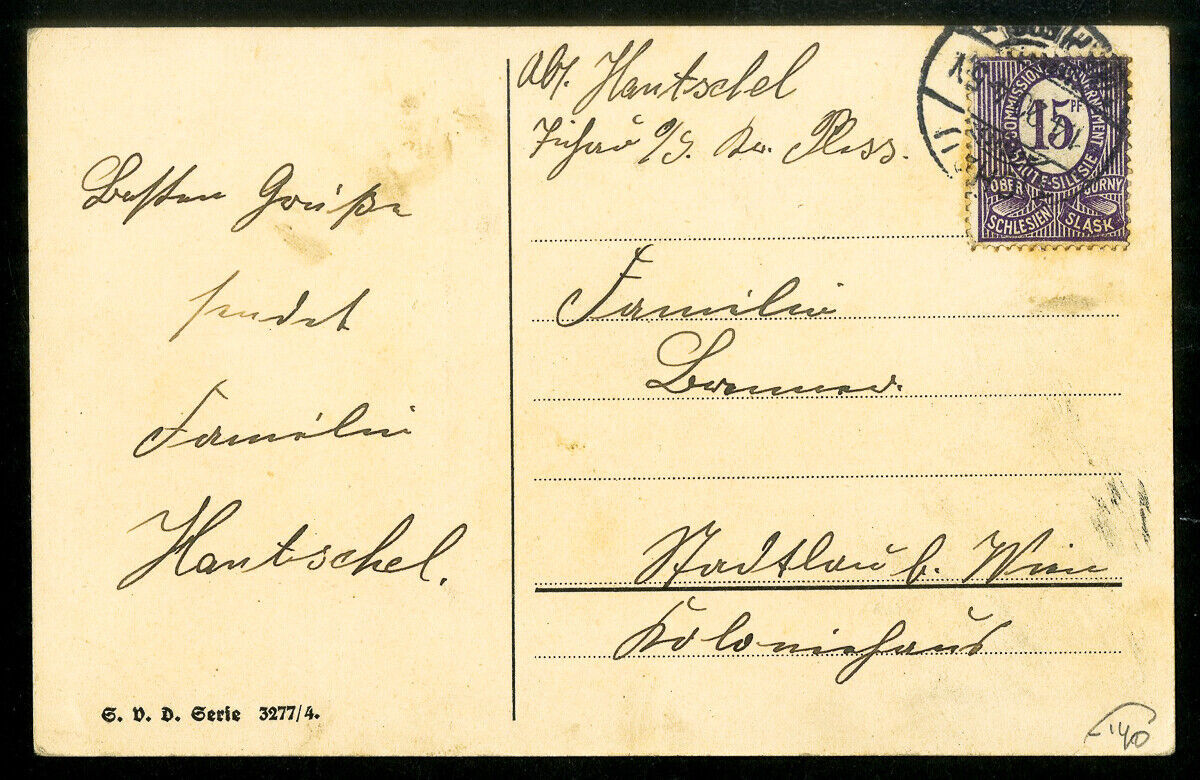 Besten Grüße
sendet
Familie
Hantschel.
S. V. D. Serie 3277/4.
Abs. Hantschel
O/S. Kr. Pless.
COMMISSION DE GOUVERNEMENT
HAUTE-SILESIE
15 PF
OBER GORNY
SCHLESIEN SLASK
Familie
Stadtlau b. Wien
Koloniehaus
140